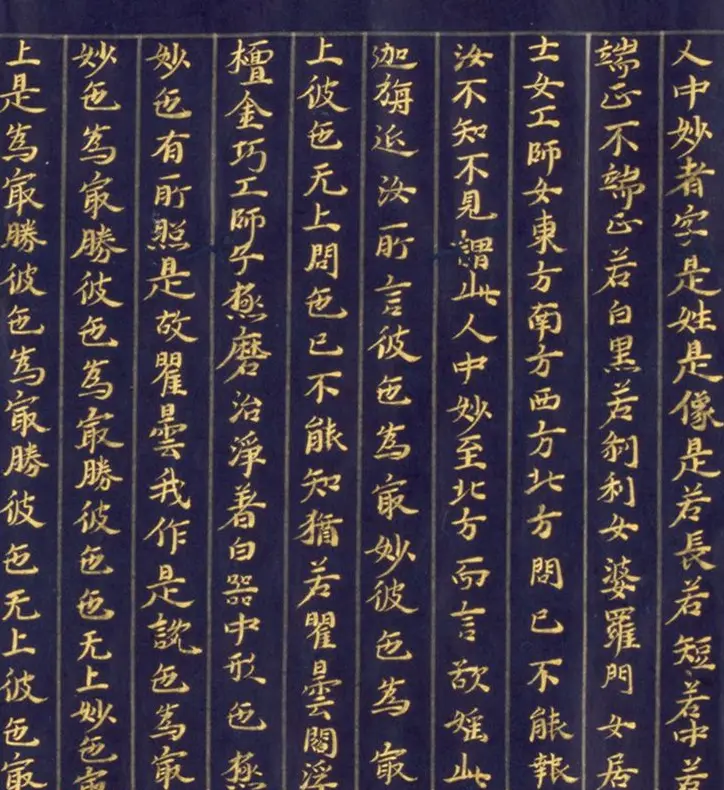 人中妙者字是姓是像是若長若短若中若
端正不端正若白黒若刹利女婆羅門女居
士女工師女東方南方西方北方問已不能報
汝不知不見謂此人中妙至北方而言欲婬此
迦旃延汝所言彼色為㝡妙彼色為㝡
上彼色无上問色已不能知猶若瞿曇閻浮
檀金巧工師子極磨治淨著白器中形色極
妙色有所照是故瞿曇我作是說色為㝡
妙色為㝡勝彼色為㝡勝彼色色无上妙色㝡
上是為㝡勝彼色為㝡勝彼色无上彼色㝡